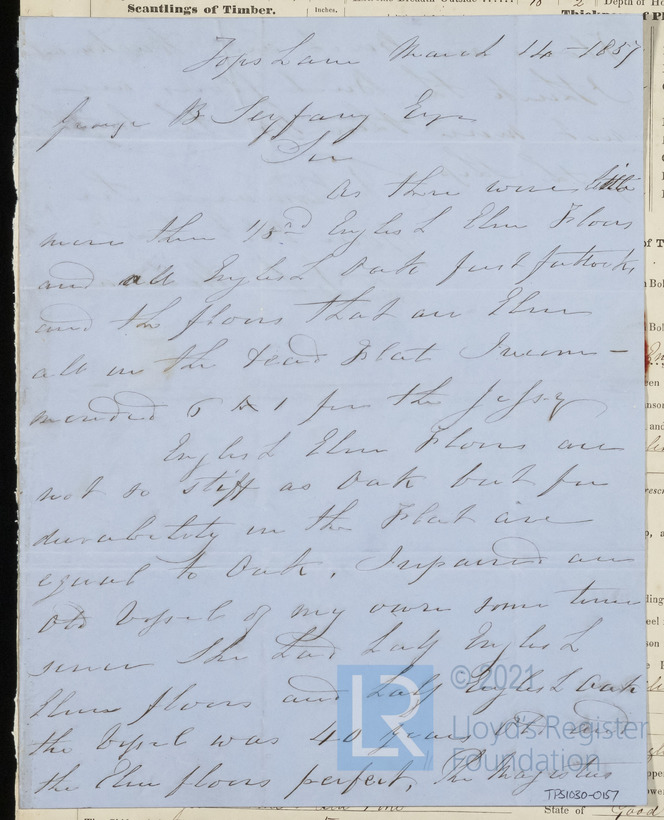 Scantlings of Timber.
Inches.
Topsham March 14 - 1857
George B Seyfang Esqr
Sir
As there were little
more than 1/3rd English Elm Floors
and all English Oak first futtocks
and the floors that are Elm
all in the dead Flat I recom-
mended 6 A 1 for the Jessy
English Elm Floors are
not so stiff as Oak but for
durability in the Flat are
equal to Oak. I repaired an
old Vessel of my own some time
since She had half English
Elm floors and half English Oak
the Vessel was 40 years old and
the Elm floors perfect, The Magistus
© 2021
Lloyd's Register
Foundation
LR
TPS1030-0157
State of Good